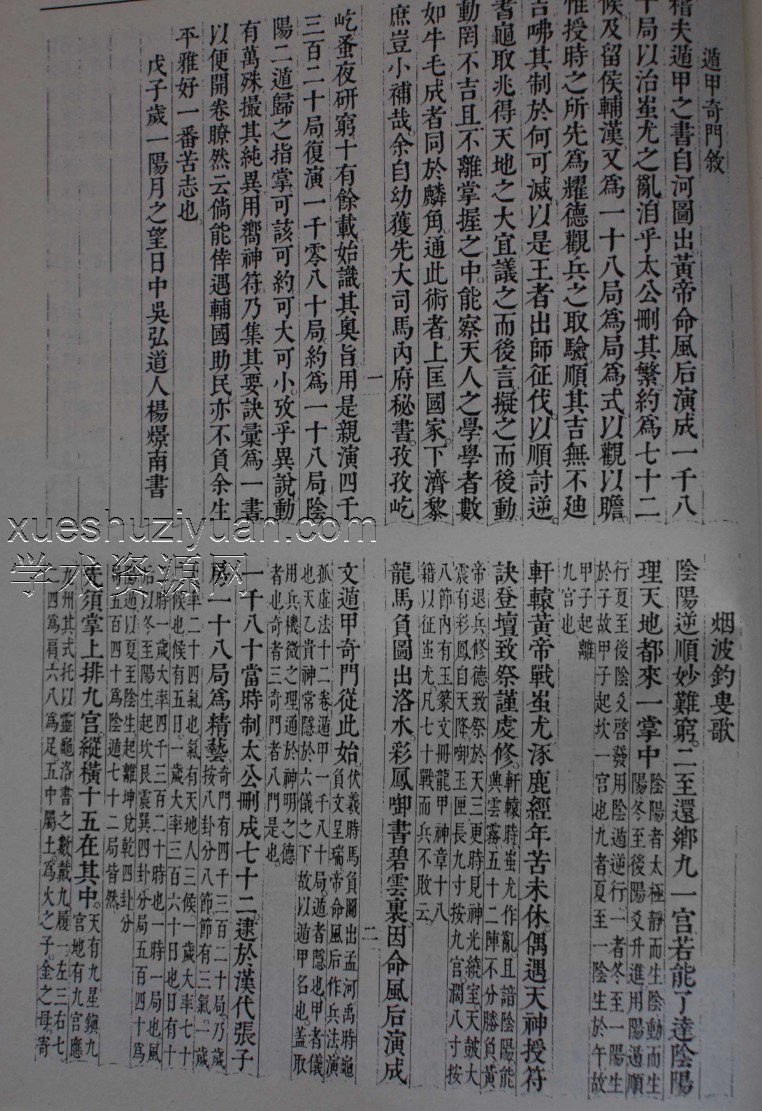 遁甲奇門敘
稽夫遁甲之書自河圖出黃帝命風后演成一千八
十局以治蚩尤之亂洎乎太公刪其繁約爲七十二
候及留侯輔漢又爲一十八局爲局爲式以觀以瞻
惟授時之所先爲耀德觀兵之取驗順其吉無不迪
吉咈其制於何可滅以是王者出師征伐以順討逆
耆龜取兆得天地之大宜議之而後言擬之而後動
動罔不吉且不離掌握之中能察天人之學學者數
如牛毛成者同於麟角通此術者上匡國家下濟黎
庶豈小補哉余自幼獲先大司馬內府秘書孜孜屹
屹蚤夜研窮十有餘載始識其奧旨用是親演四千
三百二十局復演一千零八十局約爲一十八局陰
陽二遁歸之指掌可該可約可大可小攷乎異說動
有萬殊撮其純異用嚮神符乃集其要訣彙爲一書
以便開卷瞭然云倘能倖遇輔國助民亦不負余生
平雅好一番苦志也
戊子歲一陽月之望日中吳弘道人楊燝南書
一
烟波釣叟歌
陰陽逆順妙難窮二至還鄉九一宮若能了達陰陽
理天地都來一掌中
陰陽者太極靜而生陰動而生
陽冬至後陽爻升進用陽遁順
行夏至後陰爻啓發用陰遁逆行一者冬至一陽生
於子故甲子起坎一宮也九者夏至一陰生於午故
甲子起離
九宮也
軒轅黃帝戰蚩尤涿鹿經年苦未休偶遇天神授符
訣登壇致祭謹虔修
軒轅時蚩尤作亂且諳陰陽能
興雲霧五十二陣不分勝負黃
帝退兵修德致祭於天三更時見神光繞室天鼓大
震有彩鳳自天降啣玉匣長九寸按九宮濶八寸按
八節內有玉篆文冊龍甲神章十八
籍以征蚩尤凡七十戰而兵不敗云
龍馬負圖出洛水彩鳳啣書碧雲裏因命風后演成
二
文遁甲奇門從此始
伏羲時馬負圖出孟河禹時龜
負文呈瑞帝命風后作兵法演
孤虛法十二卷遁甲一千八十局遁者隱也甲者儀
也天乙貴神常隱於六儀之下故以遁甲名也蓋取
用兵機微之理通於神明之德
者也奇者三奇門者八門是也
一千八十當時制太公刪成七十二逮於漢代張子
房一十八局爲精藝
奇門有四千三百二十局乃歲
按八卦分八節節有三氣一歲
大率二十四氣也氣有天地人三候一歲大率七十
二候也候有五日一歲大率三百六十日也日有十
二時一歲大率四千三百二十時也一時一局也風
后以冬至陽生起坎艮震巽四卦分局五百四十爲
陽遁以夏至陰生起離坤兌乾四卦分
局五百四十爲陰遁七十二局皆然
先須掌上排九宮縱橫十五在其中
天有九星鎮九
宮地有九宮應
九州其式托以靈龜洛書之數戴九履一左三右七
二四爲肩六八爲足五中屬土爲火之子金之母寄
xueshuziyuan.com
学术资源网